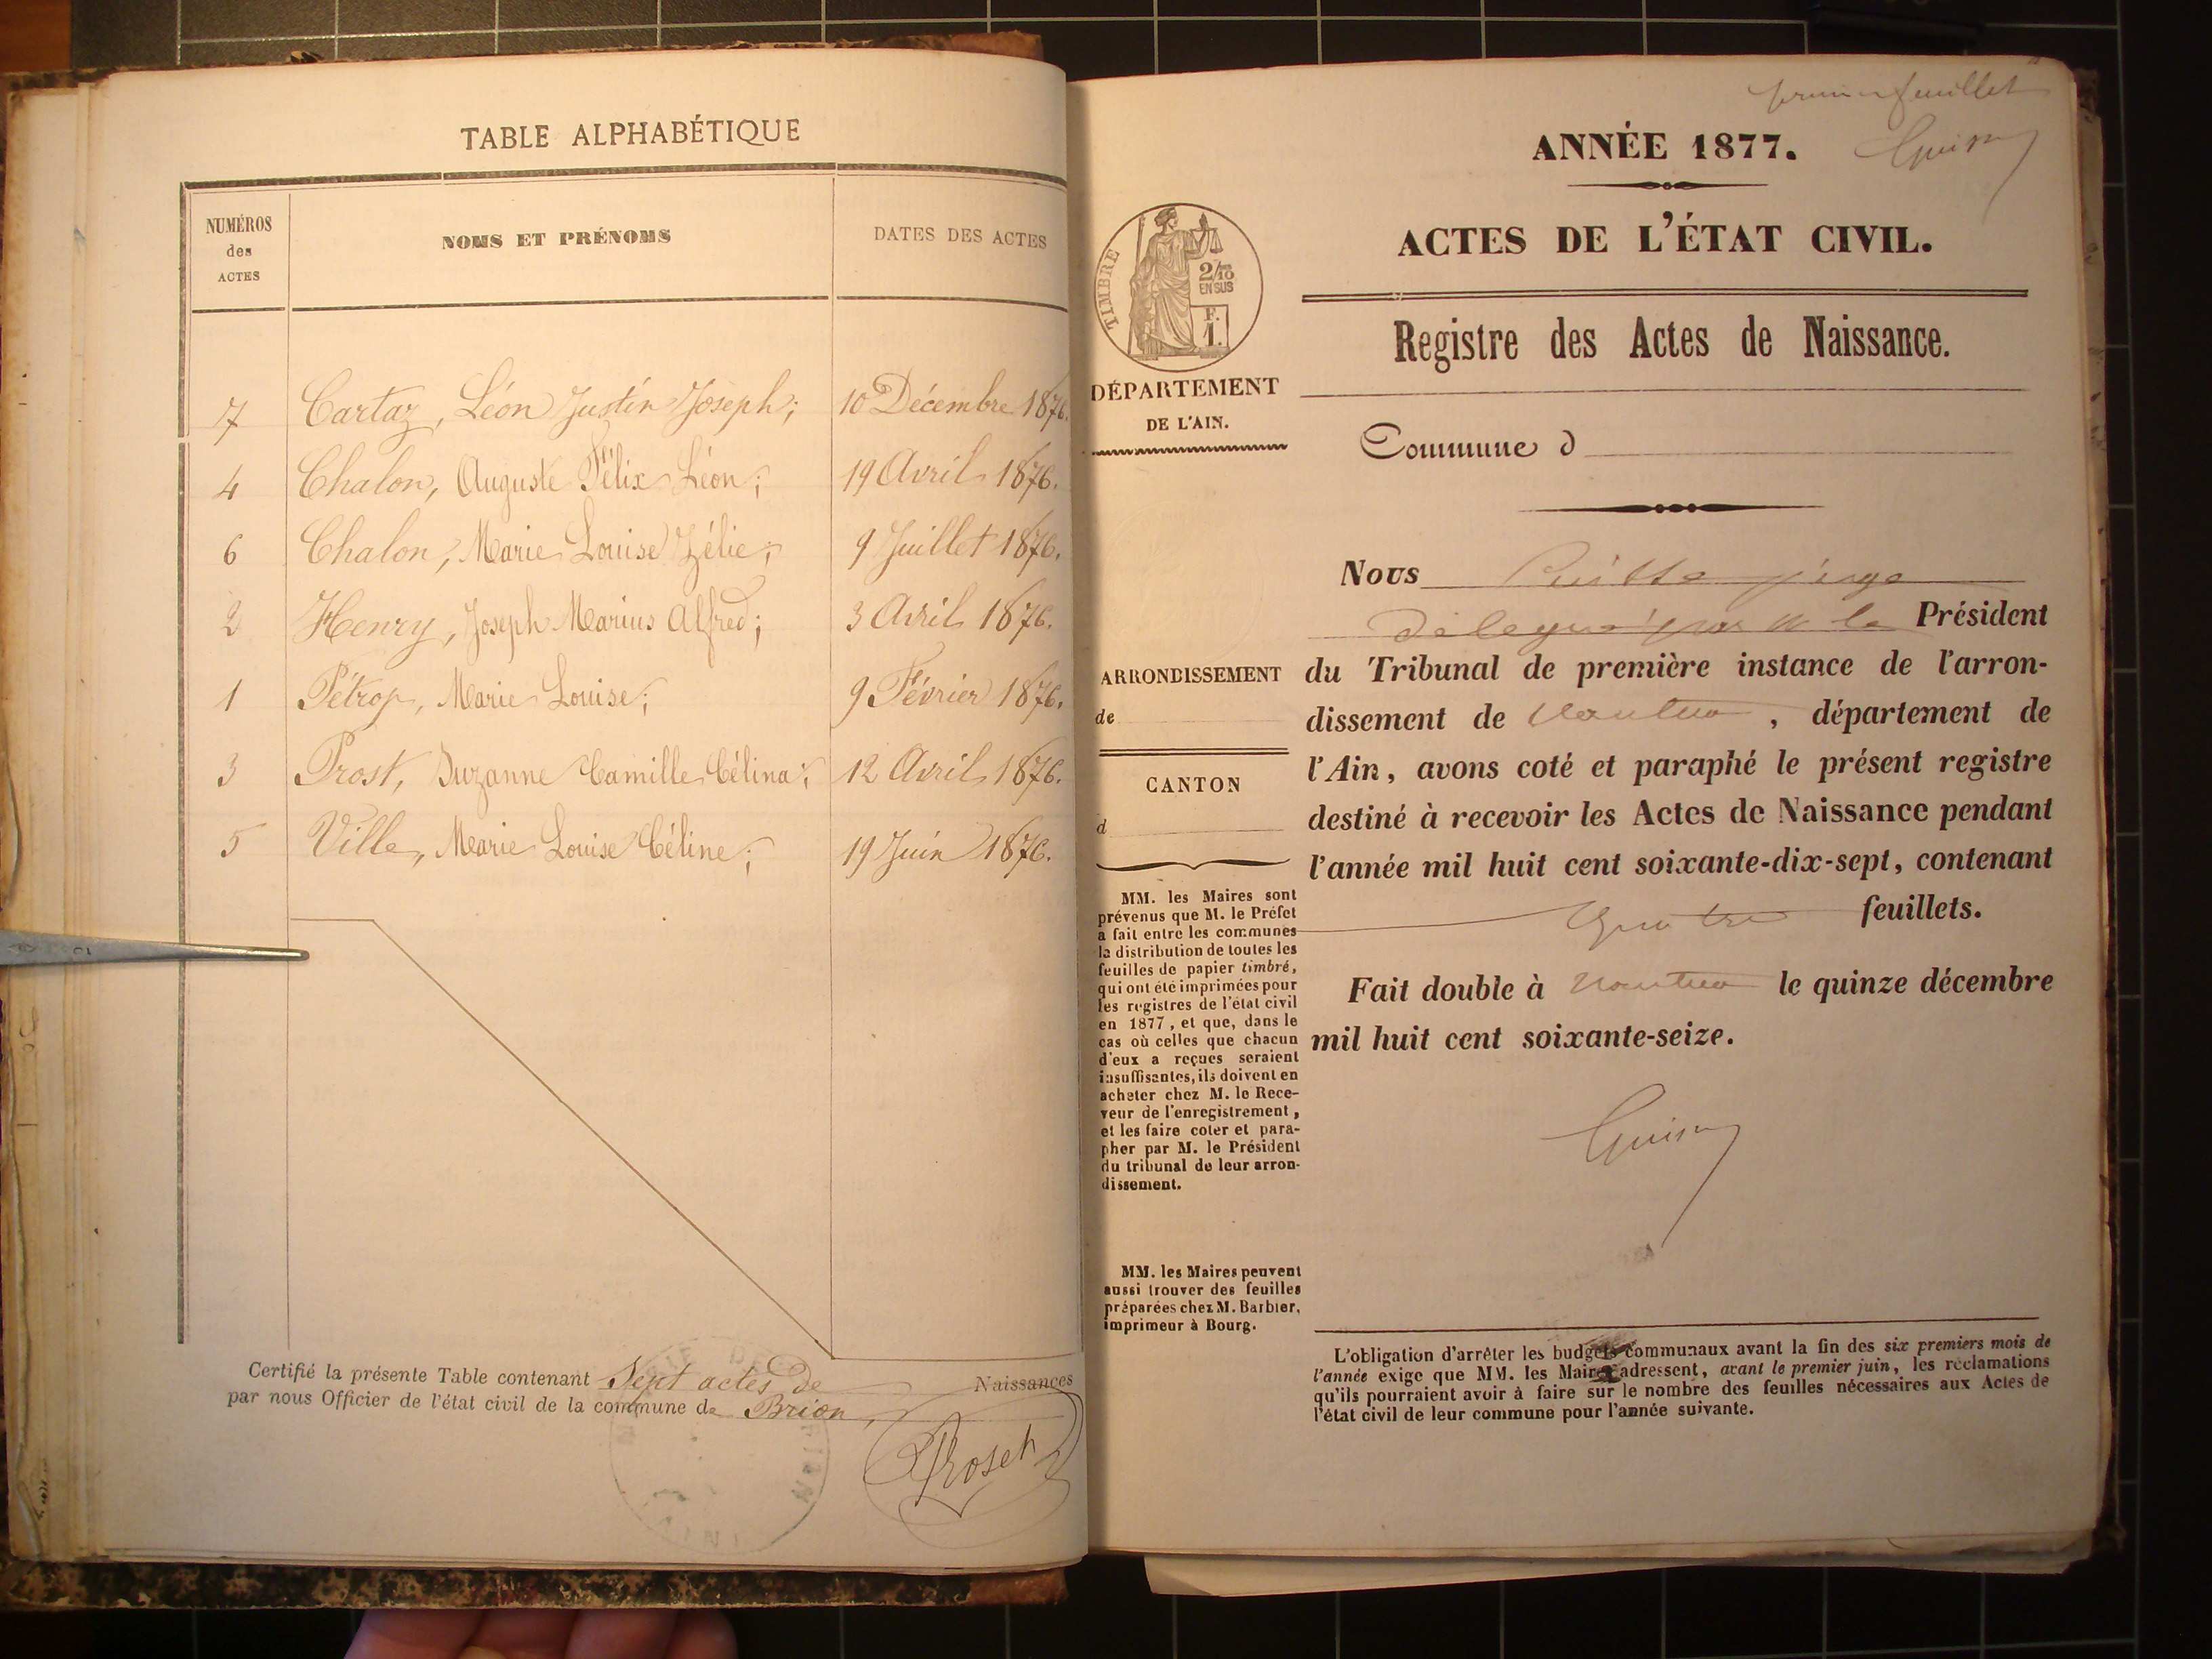 TABLE ALPHABÉTIQUE
NUMÉROS des ACTES
NOMS ET PRÉNOMS
DATES DES ACTES
7 Cartaz, Léon Justin Joseph; 10 Décembre 1876.
4 Chalon, Auguste Félix Léon; 19 Avril 1876.
6 Chalon, Marie Louise Zélie; 9 Juillet 1876.
2 Henry, Joseph Marius Alfred; 3 Avril 1876.
1 Pétrop, Marie Louise; 9 Février 1876.
3 Prost, Suzanne Camille Célina; 12 Avril 1876.
5 Ville, Marie Louise Céline; 19 Juin 1876.
Certifié la présente Table contenant Sept actes de Naissances
par nous Officier de l'état civil de la commune de Brion,
feuillet
ANNÉE 1877.
ACTES DE L'ÉTAT CIVIL.
Registre des Actes de Naissance.
Commune d
TIMBRE
2/10
EN SUS
F.
1.
DÉPARTEMENT
DE L'AIN.
ARRONDISSEMENT
de
CANTON
d
MM. les Maires sont
prévenus que M. le Préfet
a fait entre les communes
la distribution de toutes les
feuilles de papier timbré,
qui ont été imprimées pour
les registres de l'état civil
en 1877, et que, dans le
cas où celles que chacun
d'eux a reçues seraient
insuffisantes, ils doivent en
acheter chez M. le Rece-
veur de l'enregistrement,
et les faire coter et para-
pher par M. le Président
du tribunal de leur arron-
dissement.
MM. les Maires peuvent
aussi trouver des feuilles
préparées chez M. Barbier,
imprimeur à Bourg.
Nous juge
délégué par M le Président
du Tribunal de première instance de l'arron-
dissement de Nantua, département de
l'Ain, avons coté et paraphé le présent registre
destiné à recevoir les Actes de Naissance pendant
l'année mil huit cent soixante-dix-sept, contenant
quatre feuillets.
Fait double à Nantua le quinze décembre
mil huit cent soixante-seize.
L'obligation d'arrêter les budgets communaux avant la fin des six premiers mois de
l'année exige que MM. les Maires adressent, avant le premier juin, les réclamations
qu'ils pourraient avoir à faire sur le nombre des feuilles nécessaires aux Actes de
l'état civil de leur commune pour l'année suivante.